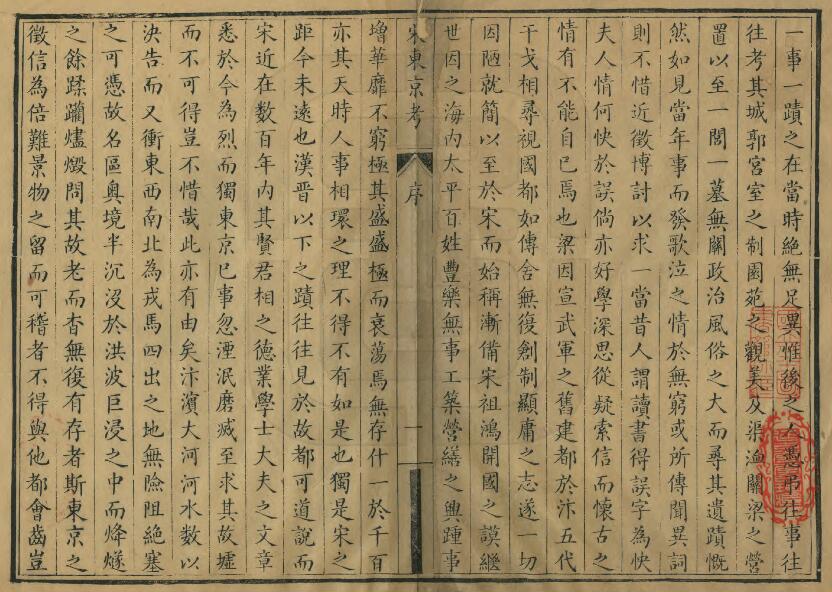 一事一蹟之在當時絶無足異惟後之人憑弔往事往
往考其城郭宮室之制園苑之觀美及渠漁關梁之營
置以至一閭一墓無關政治風俗之大而尋其遺蹟慨
然如見當年事而發歌泣之情於無窮或所傳聞異詞
則不惜近徵博討以求一當昔人謂讀書得誤字為快
夫人情何快於誤倘亦好學深思從疑索信而懷古之
情有不能自已焉也梁因宣武軍之舊建都於汴五代
干戈相尋視國都如傳舍無復創制顯庸之志遂一切
因陋就簡以至於宋而始稱漸備宋祖鴻開國之謨繼
世因之海內太平百姓豐樂無事工築營繕之興踵事
宋東京考
序
一
增華靡不窮極其盛盛極而衰蕩焉無存什一於千百
亦其天時人事相環之理不得不有如是也獨是宋之
距今未遠也漢晉以下之蹟往往見於故都可道說而
宋近在数百年內其賢君相之德業學士大夫之文章
悉於今為烈而獨東京已事忽湮泯磨滅至求其故墟
而不可得豈不惜哉此亦有由矣汴濱大河河水数以
決告而又衝東西南北為戎馬四出之地無險阻絶塞
之可憑故名區奧境半沉沒於洪波巨浸之中而烽燧
之餘蹂躪燼燬問其故老而杳無復有存者斯東京之
徵信為倍難景物之留而可稽者不得與他都會齒豈